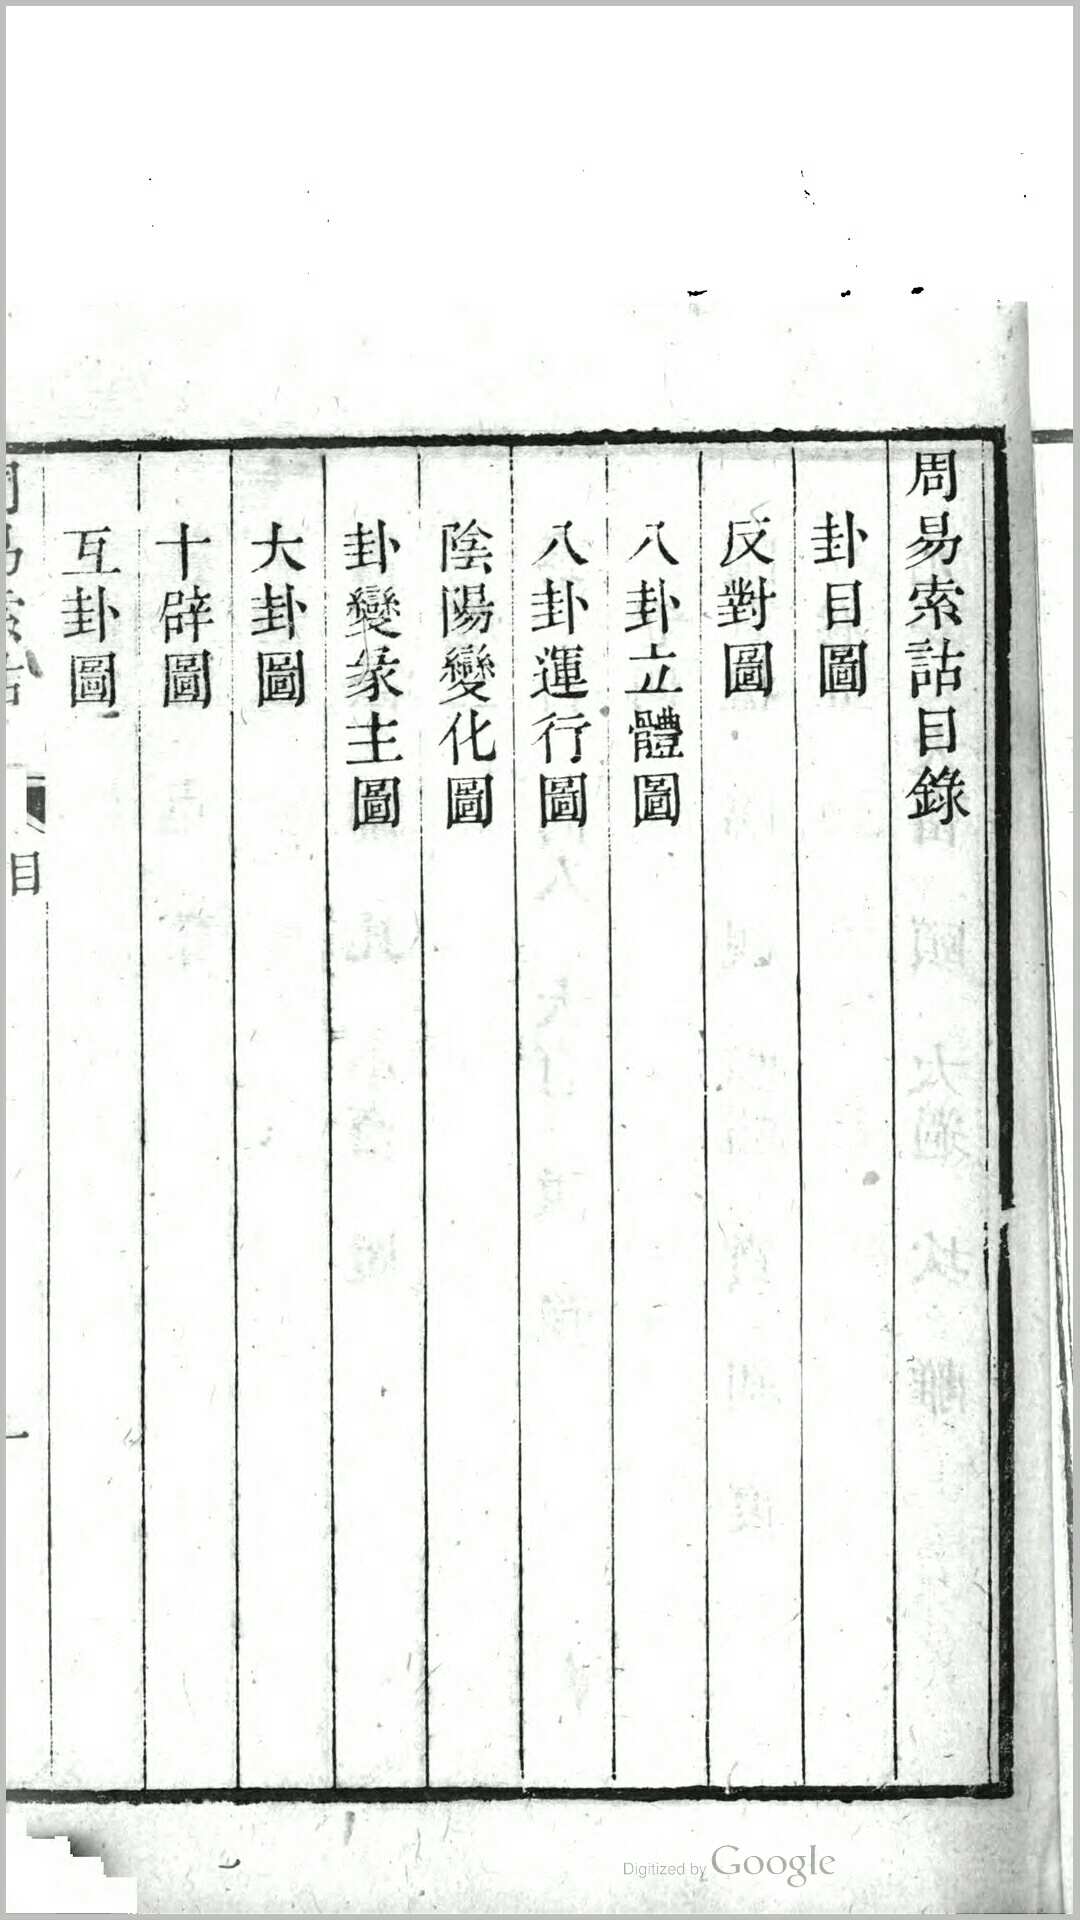 周易索詁目錄
卦目圖
反對圖
八卦立體圖
八卦運行圖
陰陽變化圖
卦變彖主圖
大卦圖
十辟圖
互卦圖
目
一
Digitized by Google